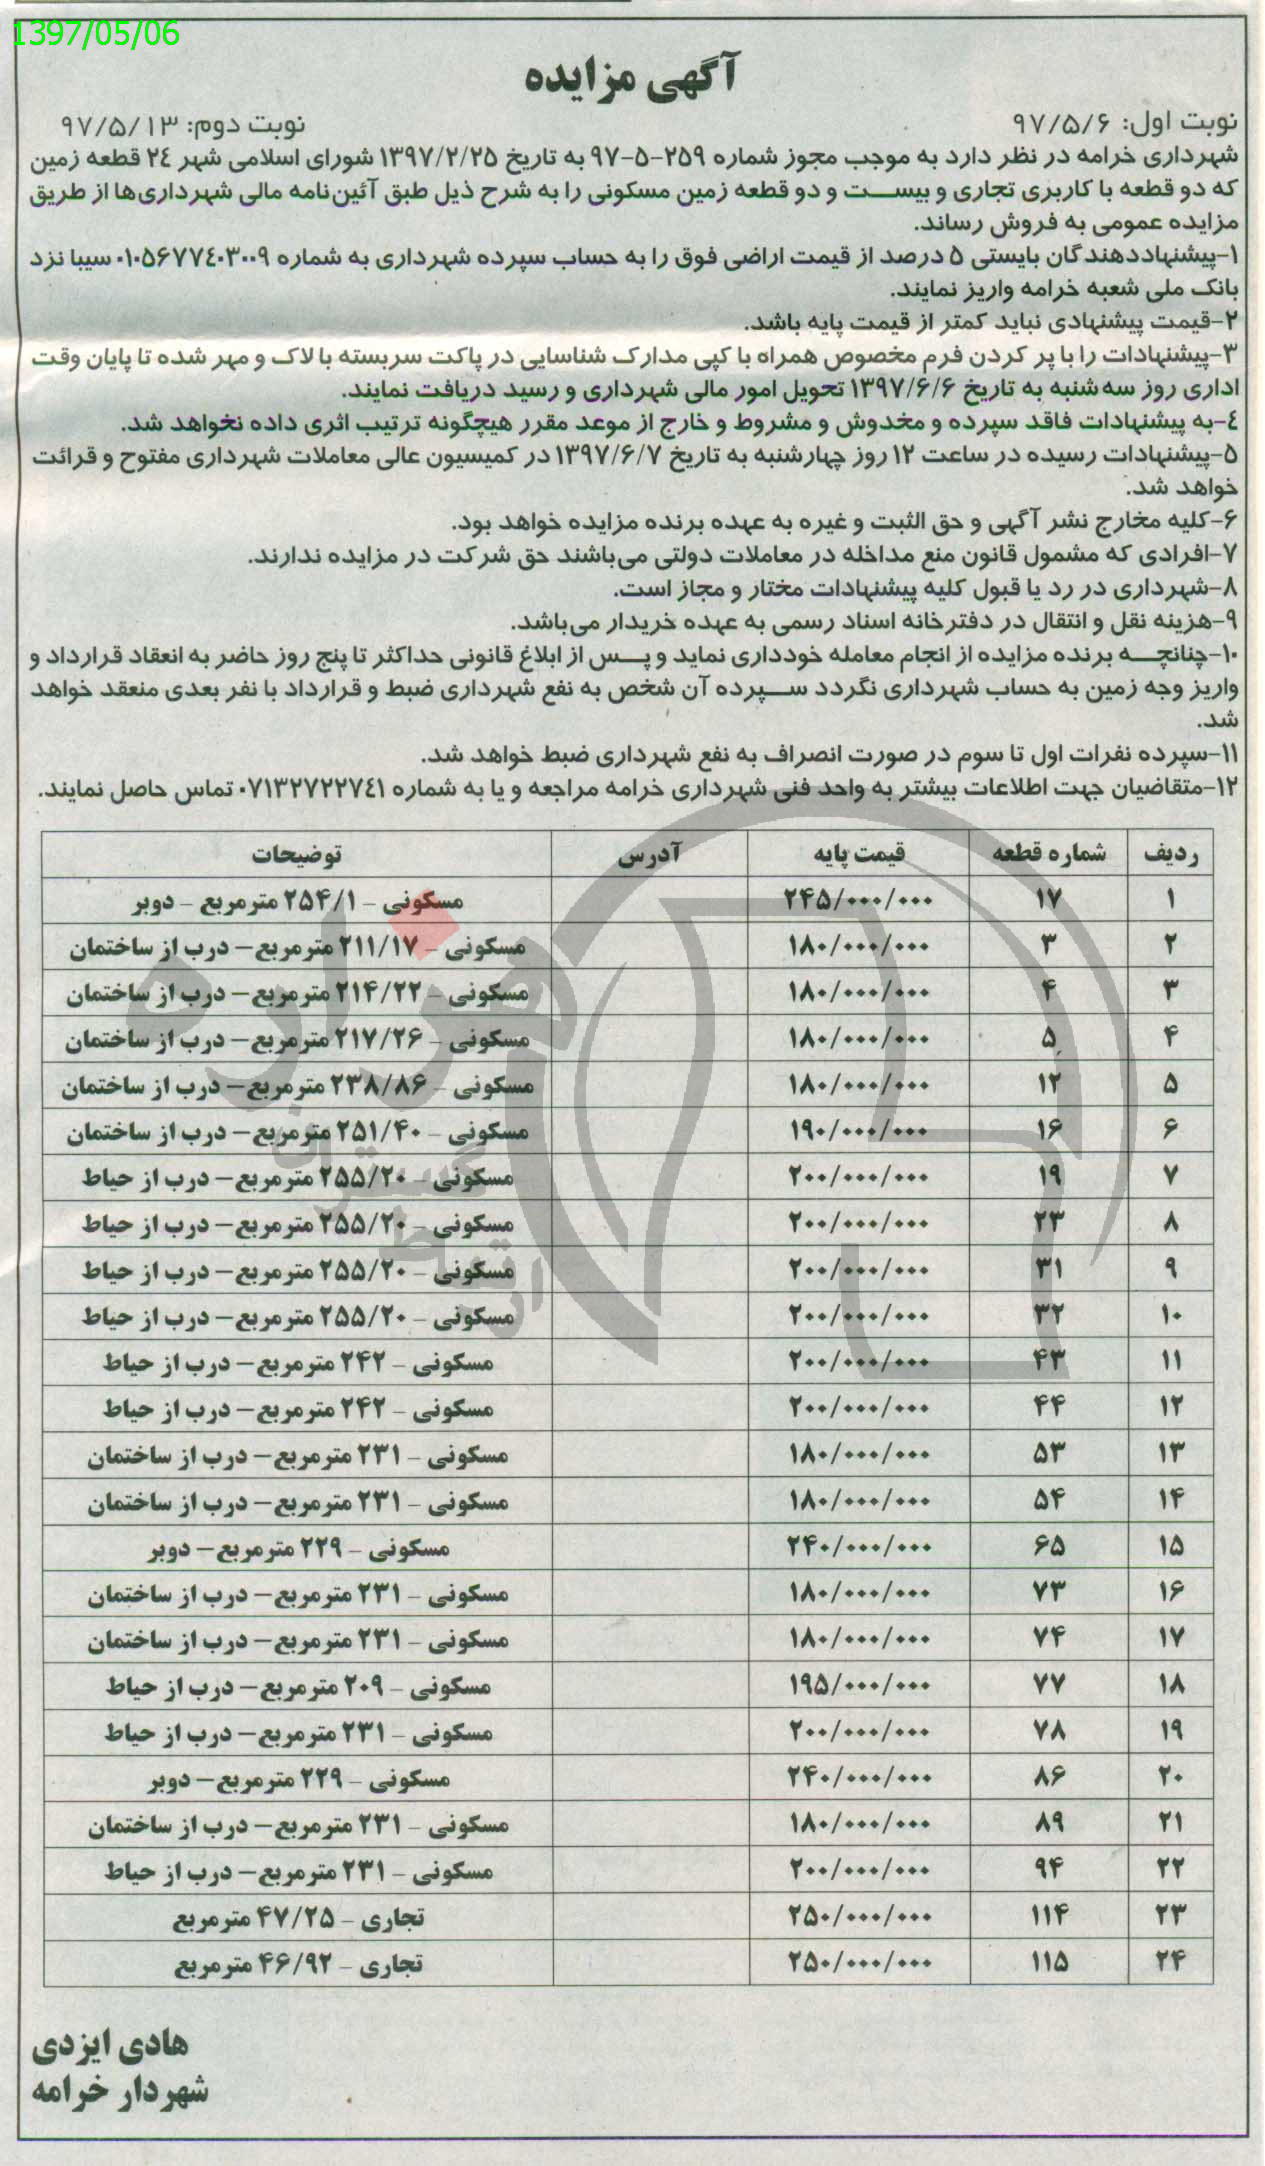 1397/05/06
آگهی مزایده
نوبت اول: ۹۷/۵/۶ نوبت دوم: ۹۷/۵/۱۳
شهرداری خرامه در نظر دارد به موجب مجوز شماره ۲۵۹-۵-۹۷ به تاریخ ۱۳۹۷/۲/۲۵ شورای اسلامی شهر ۲٤ قطعه زمین
که دو قطعه با کاربری تجاری و بیست و دو قطعه زمین مسکونی را به شرح ذیل طبق آئین‌نامه مالی شهرداری‌ها از طریق
مزایده عمومی به فروش رساند.
۱-پیشنهاددهندگان بایستی ۵ درصد از قیمت اراضی فوق را به حساب سپرده شهرداری به شماره ۰۱۰۵۶۷۷٤۰۳۰۰۹ سیبا نزد
بانک ملی شعبه خرامه واریز نمایند.
۲-قیمت پیشنهادی نباید کمتر از قیمت پایه باشد.
۳-پیشنهادات را با پر کردن فرم مخصوص همراه با کپی مدارک شناسایی در پاکت سربسته با لاک و مهر شده تا پایان وقت
اداری روز سه‌شنبه به تاریخ ۱۳۹۷/۶/۶ تحویل امور مالی شهرداری و رسید دریافت نمایند.
٤-به پیشنهادات فاقد سپرده و مخدوش و مشروط و خارج از موعد مقرر هیچگونه ترتیب اثری داده نخواهد شد.
۵-پیشنهادات رسیده در ساعت ۱۲ روز چهارشنبه به تاریخ ۱۳۹۷/۶/۷ در کمیسیون عالی معاملات شهرداری مفتوح و قرائت
خواهد شد.
۶-کلیه مخارج نشر آگهی و حق الثبت و غیره به عهده برنده مزایده خواهد بود.
۷-افرادی که مشمول قانون منع مداخله در معاملات دولتی می‌باشند حق شرکت در مزایده ندارند.
۸-شهرداری در رد یا قبول کلیه پیشنهادات مختار و مجاز است.
۹-هزینه نقل و انتقال در دفترخانه اسناد رسمی به عهده خریدار می‌باشد.
۱۰-چنانچه برنده مزایده از انجام معامله خودداری نماید و پس از ابلاغ قانونی حداکثر تا پنج روز حاضر به انعقاد قرارداد و
واریز وجه زمین به حساب شهرداری نگردد سپرده آن شخص به نفع شهرداری ضبط و قرارداد با نفر بعدی منعقد خواهد
شد.
۱۱-سپرده نفرات اول تا سوم در صورت انصراف به نفع شهرداری ضبط خواهد شد.
۱۲-متقاضیان جهت اطلاعات بیشتر به واحد فنی شهرداری خرامه مراجعه و یا به شماره ۰۷۱۳۲۷۲۲۷٤۱ تماس حاصل نمایند.
ردیف شماره قطعه قیمت پایه آدرس توضیحات
۱ ۱۷ ۲۴۵/۰۰۰/۰۰۰ مسکونی – ۲۵۴/۱ مترمربع – دوبر
۲ ۳ ۱۸۰/۰۰۰/۰۰۰ مسکونی – ۲۱۱/۱۷ مترمربع – درب از ساختمان
۳ ۴ ۱۸۰/۰۰۰/۰۰۰ مسکونی – ۲۱۴/۲۲ مترمربع – درب از ساختمان
۴ ۵ ۱۸۰/۰۰۰/۰۰۰ مسکونی – ۲۱۷/۲۶ مترمربع – درب از ساختمان
۵ ۱۲ ۱۸۰/۰۰۰/۰۰۰ مسکونی – ۲۳۸/۸۶ مترمربع – درب از ساختمان
۶ ۱۶ ۱۹۰/۰۰۰/۰۰۰ مسکونی – ۲۵۱/۴۰ مترمربع – درب از ساختمان
۷ ۱۹ ۲۰۰/۰۰۰/۰۰۰ مسکونی – ۲۵۵/۲۰ مترمربع – درب از حیاط
۸ ۲۳ ۲۰۰/۰۰۰/۰۰۰ مسکونی – ۲۵۵/۲۰ مترمربع – درب از حیاط
۹ ۳۱ ۲۰۰/۰۰۰/۰۰۰ مسکونی – ۲۵۵/۲۰ مترمربع – درب از حیاط
۱۰ ۳۲ ۲۰۰/۰۰۰/۰۰۰ مسکونی – ۲۵۵/۲۰ مترمربع – درب از حیاط
۱۱ ۴۳ ۲۰۰/۰۰۰/۰۰۰ مسکونی – ۲۴۲ مترمربع – درب از حیاط
۱۲ ۴۴ ۲۰۰/۰۰۰/۰۰۰ مسکونی – ۲۴۲ مترمربع – درب از حیاط
۱۳ ۵۳ ۱۸۰/۰۰۰/۰۰۰ مسکونی – ۲۳۱ مترمربع – درب از ساختمان
۱۴ ۵۴ ۱۸۰/۰۰۰/۰۰۰ مسکونی – ۲۳۱ مترمربع – درب از ساختمان
۱۵ ۶۵ ۲۴۰/۰۰۰/۰۰۰ مسکونی – ۲۲۹ مترمربع – دوبر
۱۶ ۷۳ ۱۸۰/۰۰۰/۰۰۰ مسکونی – ۲۳۱ مترمربع – درب از ساختمان
۱۷ ۷۴ ۱۸۰/۰۰۰/۰۰۰ مسکونی – ۲۳۱ مترمربع – درب از ساختمان
۱۸ ۷۷ ۱۹۵/۰۰۰/۰۰۰ مسکونی – ۲۰۹ مترمربع – درب از حیاط
۱۹ ۷۸ ۲۰۰/۰۰۰/۰۰۰ مسکونی – ۲۳۱ مترمربع – درب از حیاط
۲۰ ۸۶ ۲۴۰/۰۰۰/۰۰۰ مسکونی – ۲۲۹ مترمربع – دوبر
۲۱ ۸۹ ۱۸۰/۰۰۰/۰۰۰ مسکونی – ۲۳۱ مترمربع – درب از ساختمان
۲۲ ۹۴ ۲۰۰/۰۰۰/۰۰۰ مسکونی – ۲۳۱ مترمربع – درب از حیاط
۲۳ ۱۱۴ ۲۵۰/۰۰۰/۰۰۰ تجاری – ۴۷/۲۵ مترمربع
۲۴ ۱۱۵ ۲۵۰/۰۰۰/۰۰۰ تجاری – ۴۶/۹۲ مترمربع
هادی ایزدی
شهردار خرامه